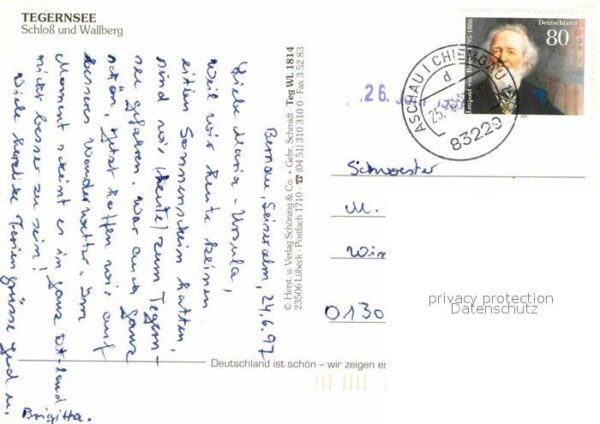 TEGERNSEE
Schloß und Wallberg
Bernau, 24.6.97
Liebe Maria-Ursula,
weil wir heute keinen
Sonnenschein hatten,
sind wir (heute) zum Tegern-
see gefahren. War auch ganz
schön, jetzt hoffen wir auf
besseres Wanderwetter. Im
Moment scheint es in ganz
besser zu sein!
Viele herzliche Feriengrüsse Gerd u.
Brigitta.
© Herst. u. Verlag Schöning & Co. + Gebr. Schmidt · Teg WL 1814
23506 Lübeck · Postfach 1710 · ☎ (04 51) 310 310 0 · Fax 3 52 83
Deutschland ist schön – wir zeigen es
Deutschland
80
Leopold von 1795-1886
ASCHAU I CHIEMGAU
d
25.
83229
26.
Schwester
M.
0130
privacy protection
Datenschutz